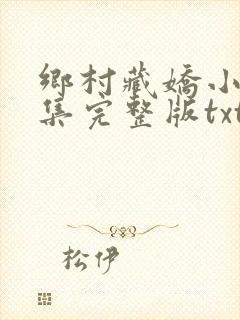 鄉村藏嬌小
集完整版txt
松伊